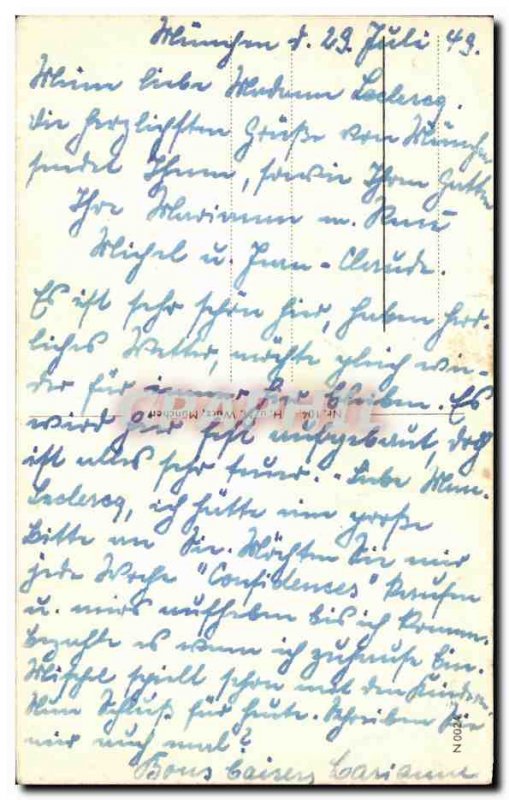 München d. 29. Juli 49.
Meine liebe Madame Leclercq.
Die herzlichsten Grüße von München
sendet Ihnen, sowie Ihrem Gatten
Ihre Marianne m. René
Michel u. Jean-Claude.
Es ist sehr schön hier, haben herr-
liches Wetter, möchte gleich wie-
der für immer hier bleiben. Es
wird hier fest aufgebaut, doch
ist alles sehr teuer. - Liebe Mme.
Leclercq, ich hätte eine große
Bitte an Sie. Möchten Sie mir
jede Woche "Confidences" kaufen
u. mirs aufheben bis ich komme.
Bezahle es wenn ich zuhause bin.
Michel spielt schon mit den Kindern.
Nun Schluß für heute. Schreiben Sie
mir auch mal?
Bons baisers Marianne
Nr. 104 München
N 0024